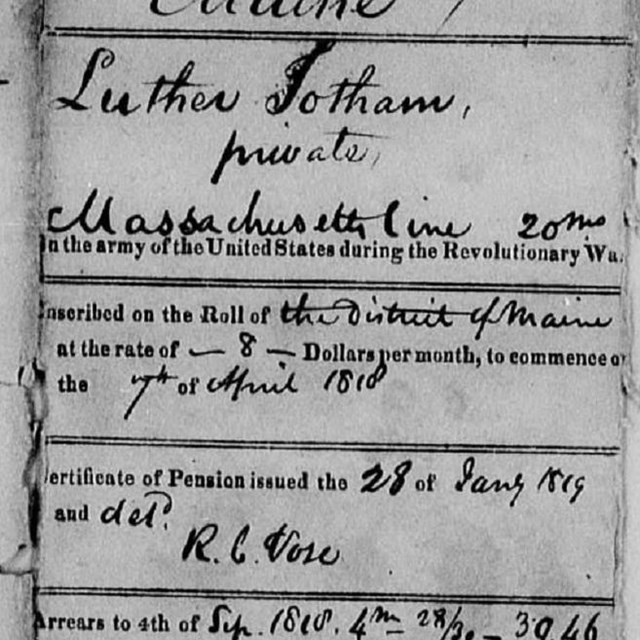 Luther Jotham,
private,
Massachusetts line 20 mo
in the army of the United States during the Revolutionary Wa
nscribed on the Roll of the District of Maine
at the rate of — 8 — Dollars per month, to commence o
the 7th of April 1818
ertificate of Pension issued the 28 of Jany 1819
and deld.
R. C. Vose
Arrears to 4th of Sep. 1818. 4 m 28/30 — 39 46